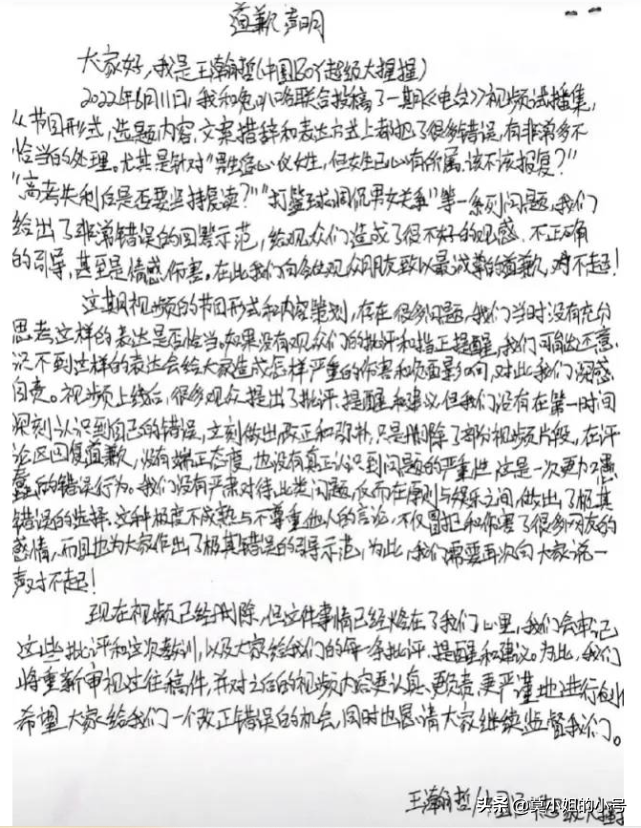 道歉声明
大家好,我是王瀚哲(中国BOY超级大猩猩)
2022年6月11日,我和兔叭咯联合投稿了一期《电台》视频试播集,
从节目形式,选题内容,文案措辞和表达方式上都犯了很多错误,有非常多不
恰当的处理。尤其是针对“男生倾心仪女生,但女生已心有所属,该不该报复?”
“高考失利后是否要坚持复读?”“打篮球调侃男女关系”等一系列问题,我们
给出了非常错误的回答示范,给观众们造成了很不好的观感、不正确
的引导,甚至是情感伤害。在此我们向各位观众朋友致以最诚挚的道歉,对不起!
这期视频的节目形式和内容策划,存在很多问题,我们当时没有充分
思考这样的表达是否恰当。如果没有观众们的批评和指正提醒,我们可能还意
识不到这样的表达会给大家造成怎样严重的伤害和负面影响,对此我们深感
自责。视频上线后,很多观众提出了批评、提醒和建议但我们没有在第一时间
深刻认识到自己的错误,立刻做出改正和弥补,只是删除了部分视频片段,在评
论区回复道歉,没有端正态度,也没有真正认识到问题的严重性,这是一次更加愚
蠢的错误行为。我们没有严肃对待此类问题,反而在原则与娱乐之间,做出了极其
错误的选择,这种极度不成熟与不尊重他人的言论,不仅冒犯和伤害了很多网友的
感情,而且也为大家作出了极其错误的引导示范,为此,我们需要再次向大家说一
声对不起!
现在视频已经删除,但这件事情已经烙在了我们心里,我们会牢记
这些批评和这次教训,以及大家给我们的每一条批评、提醒和建议。为此,我们
将重新审视过往稿件,并对之后的视频内容更认真、更负责、更严谨地进行创作
希望大家给我们一个改正错误的机会,同时也恳请大家继续监督我们。
王瀚哲(中国
头条@莫小姐的小号